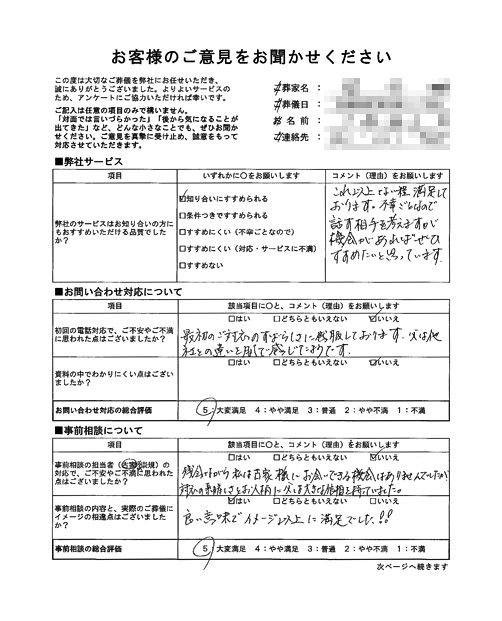 お客様のご意見をお聞かせください
この度は大切なご葬儀を弊社にお任せいただき、
誠にありがとうございました。よりよいサービスの
ため、アンケートにご協力いただければ幸いです。
ご記入は任意の項目のみで構いません。
「対面では言いづらかった」「後から気になることが
出てきた」など、どんな小さなことでも、ぜひお聞か
せください。ご意見を真摯に受け止め、誠意をもって
対応させていただきます。
葬家名：
葬儀日：
お名前：
ご連絡先：
■弊社サービス
項目 いずれかに○をお願いします コメント（理由）をお願いします
弊社のサービスはお知り合いの方に
もおすすめいただける品質でした
か？
☑知り合いにすすめられる
□条件つきですすめられる
□すすめにくい（不幸ごとなので）
□すすめにくい（対応・サービスに不満）
□すすめない
これ以上ない程 満足して
おります。不幸ごとなので
話す相手も考えますが
機会があればぜひ
すすめたいと思っています。
■お問い合わせ対応について
項目 該当項目に○と、コメント（理由）をお願いします
初回の電話対応で、ご不安やご不満
に思われた点はございましたか？
□はい □どちらともいえない ☑いいえ
最初のご対応のすばらしさに感服しております。父は他
社との違いを
資料の中でわかりにくい点はござい
ましたか？
□はい □どちらともいえない ☑いいえ
お問い合わせ対応の総合評価 5：大変満足 4：やや満足 3：普通 2：やや不満 1：不満
■事前相談について
項目 該当項目に○と、コメント（理由）をお願いします
事前相談の担当者（
対応で、ご不安やご不満に思われた
点はございましたか？
□はい □どちらともいえない ☑いいえ
残念ながら 私は古家様にお会いできる機会はありませんでしたが
対応の素晴しさとお人柄に父は大きな信頼を持っていました。
事前相談の内容と、実際のご葬儀に
イメージの相違点はございました
か？
☑はい □どちらともいえない □いいえ
良い意味でイメージ以上に満足でした!!
事前相談の総合評価 5：大変満足 4：やや満足 3：普通 2：やや不満 1：不満
次ページへ続きます